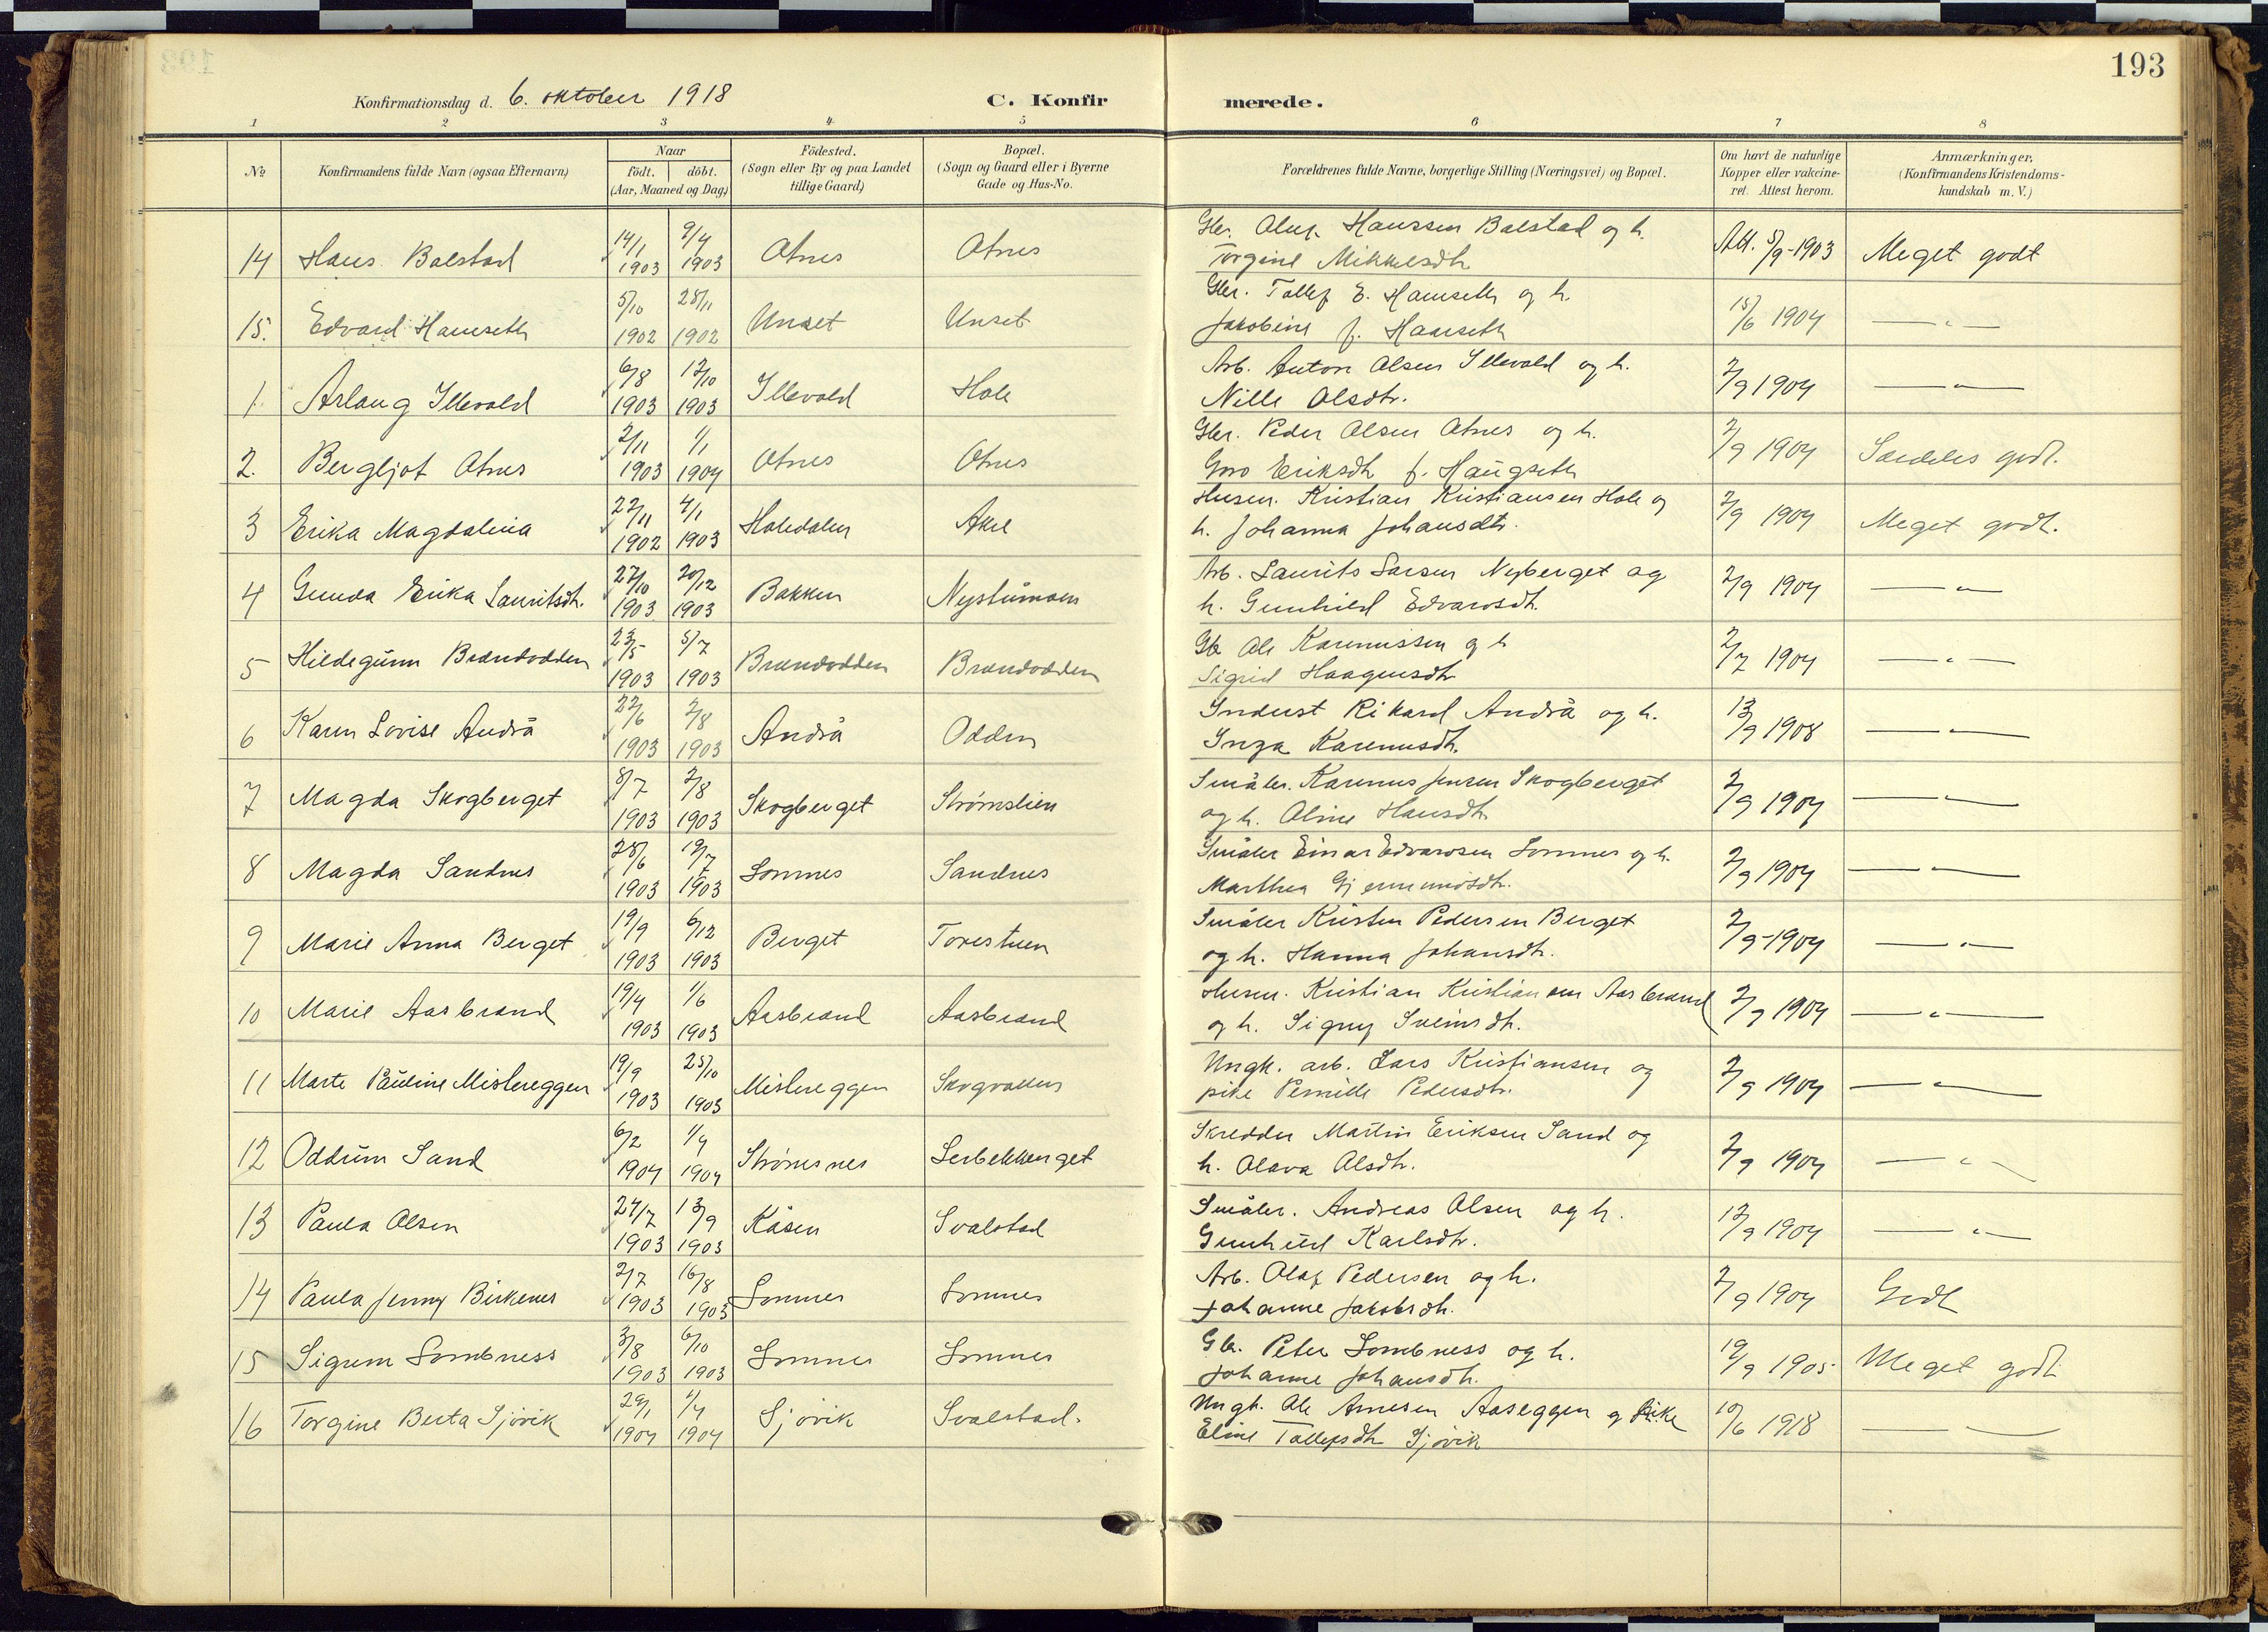 193
Konfirmationsdag d. 6. oktober 1918
C. Konfirmerede.
1 2 3 4 5 6 7 8
№ Konfirmandens fulde Navn (ogsaa Efternavn) Naar födt. döbt. (Aar, Maaned og Dag) Födested. (Sogn eller By og paa Landet tillige Gaard) Bopæl. (Sogn og Gaard eller i Byerne Gade og Hus-No. Forældrenes fulde Navne, borgerlige Stilling (Næringsvei) og Bopæl. Om havt de naturlige Kopper eller vaksineret. Attest herom. Anmærkninger, (Konfirmandens Kristendomskundskab m. V.)
14 Hans Bolstad 14/1 1903 9/4 1903 Atnes Atnes Gbr. Oluf Hanssen Bolstad og h. Torgine Mikkelsdtr Att. 5/9-1903 Meget godt
15. Edvard Hamseth 5/10 1902 25/11 1902 Unset Unset Gbr. Tollef E. Hamseth og h. Jakobine f. Hamseth 15/6 1904 —"—
1 Aslaug Illevold 6/8 1903 12/10 1903 Illevold Hole Arb. Anton Olsen Illevold og h. Nille Olsdtr. 2/9 1904 —"—
2. Bergljot Atnes 2/11 1903 1/1 1904 Atnes Atnes Gbr. Peder Olsen Atnes og h. Goro Eriksdtr f. Haugseth 2/9 1904 Særdeles godt.
3 Erika Magdalena 22/11 1902 4/1 1903 Holedalen Akre Husm. Kristian Kristiansen Hole og h. Johanna Johansdtr. 2/9 1904 Meget godt.
4 Gunda Erika Lauritsdtr. 27/10 1903 20/12 1903 Bakken Nystumoen Arb. Laurits Larsen Nyberget og h. Gunhild Edvardsdtr. 2/9 1904 —"—
5 Hildegunn Brændodden 23/5 1903 5/7 1903 Brændodden Brændodden Gb Ole Karenussen og h Sigrid Haagensdtr 2/7 1904 —"—
6 Karen Lovise Andrå 22/6 1903 2/8 1903 Andrå Odden Inderst Rikard Andrå og h. Inga Karenusdtr. 13/9 1908 —"—
7 Magda Skogberget 8/7 1903 2/8 1903 Skogberget Strømslien Småbr. Karenus Jensen Skogberget og h. Oline Hansdtr 2/9 1904 —"—
8 Magda Sandnes 28/6 1903 19/7 1903 Lomnes Sandnes Småbr Einar Edvardsen Lomnes og h. Marthea Gjermundsdtr. 2/9 1904 —"—
9 Marie Anna Berget 19/9 1903 6/12 1903 Berget Torestuen Småbr Kristen Pedersen Berget og h. Hanna Johansdtr. 2/9-1904 —"—
10 Marie Aasbrænd 19/4 1903 1/6 1903 Aasbrænd Aasbrænd Husm. Kristian Kristiansen Aasbrænd og h. Signy Sveinsdtr. 2/9 1904 —"—
11 Marte Pauline Mistereggen 19/9 1903 25/10 1903 Mistereggen Skogvollen Ungk. arb. Lars Kristiansen og pike Pernille Pedersdtr. 2/9 1904 —"—
12 Oddrun Sand 6/2 1904 1/4 1904 Strømsnes Skredder Martin Eriksen Sand og h. Olava Olsdtr. 2/9 1904 —"—
13 Paula Olsen 24/7 1903 13/9 1903 Kåsen Svalstad Småbr. Andreas Olsen og h. Gunhild Karlsdtr. 12/9 1904 —"—
14 Paula Jenny Birkenes 2/7 1903 16/8 1903 Lomnes Lomnes Arb. Olaf Pedersen og h. Johanne Jakobsdtr. 2/9 1904 Godt
15 Sigrun Lombness 3/8 1903 6/10 1903 Lomnes Lomnes Gbr. Peter Lombness og h. Johanne Johansdtr. 19/9 1905 Meget godt
16 Torgine Berta Sjövik 29/1 1904 1/4 1904 Sjövik Svalstad. Ungk. Ole Arnesen Aaseggen og pike Eline Tollefsdtr Sjövik 10/6 1918 —"—